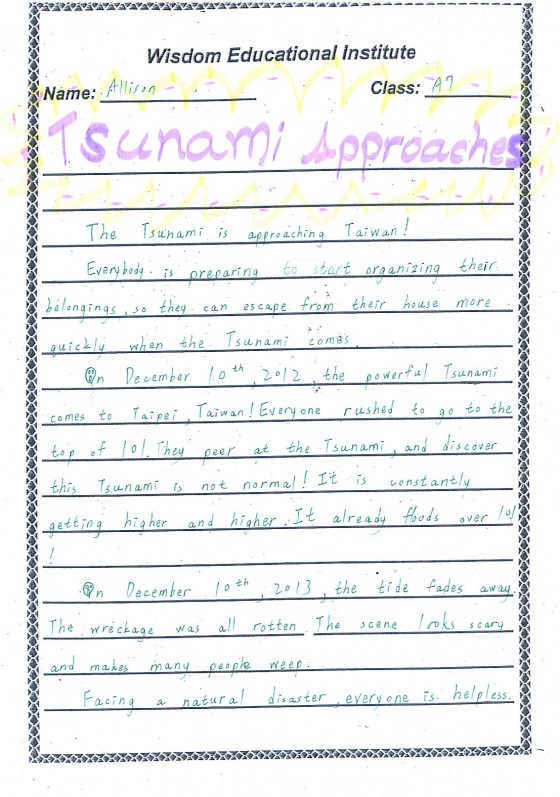 Wisdom Educational Institute
Name: Allison Class: A7
Tsunami Approaches
The Tsunami is approaching Taiwan!
Everybody is preparing to start organizing their
belongings, so they can escape from their house more
quickly when the Tsunami comes.
On December 10th, 2012, the powerful Tsunami
comes to Taipei, Taiwan! Everyone rushed to go to the
top of 101. They peer at the Tsunami, and discover
this Tsunami is not normal! It is constantly
getting higher and higher. It already floods over 101
!
On December 10th, 2013, the tide fades away.
The wreckage was all rotten. The scene looks scary
and makes many people weep.
Facing a natural disaster, everyone is helpless.